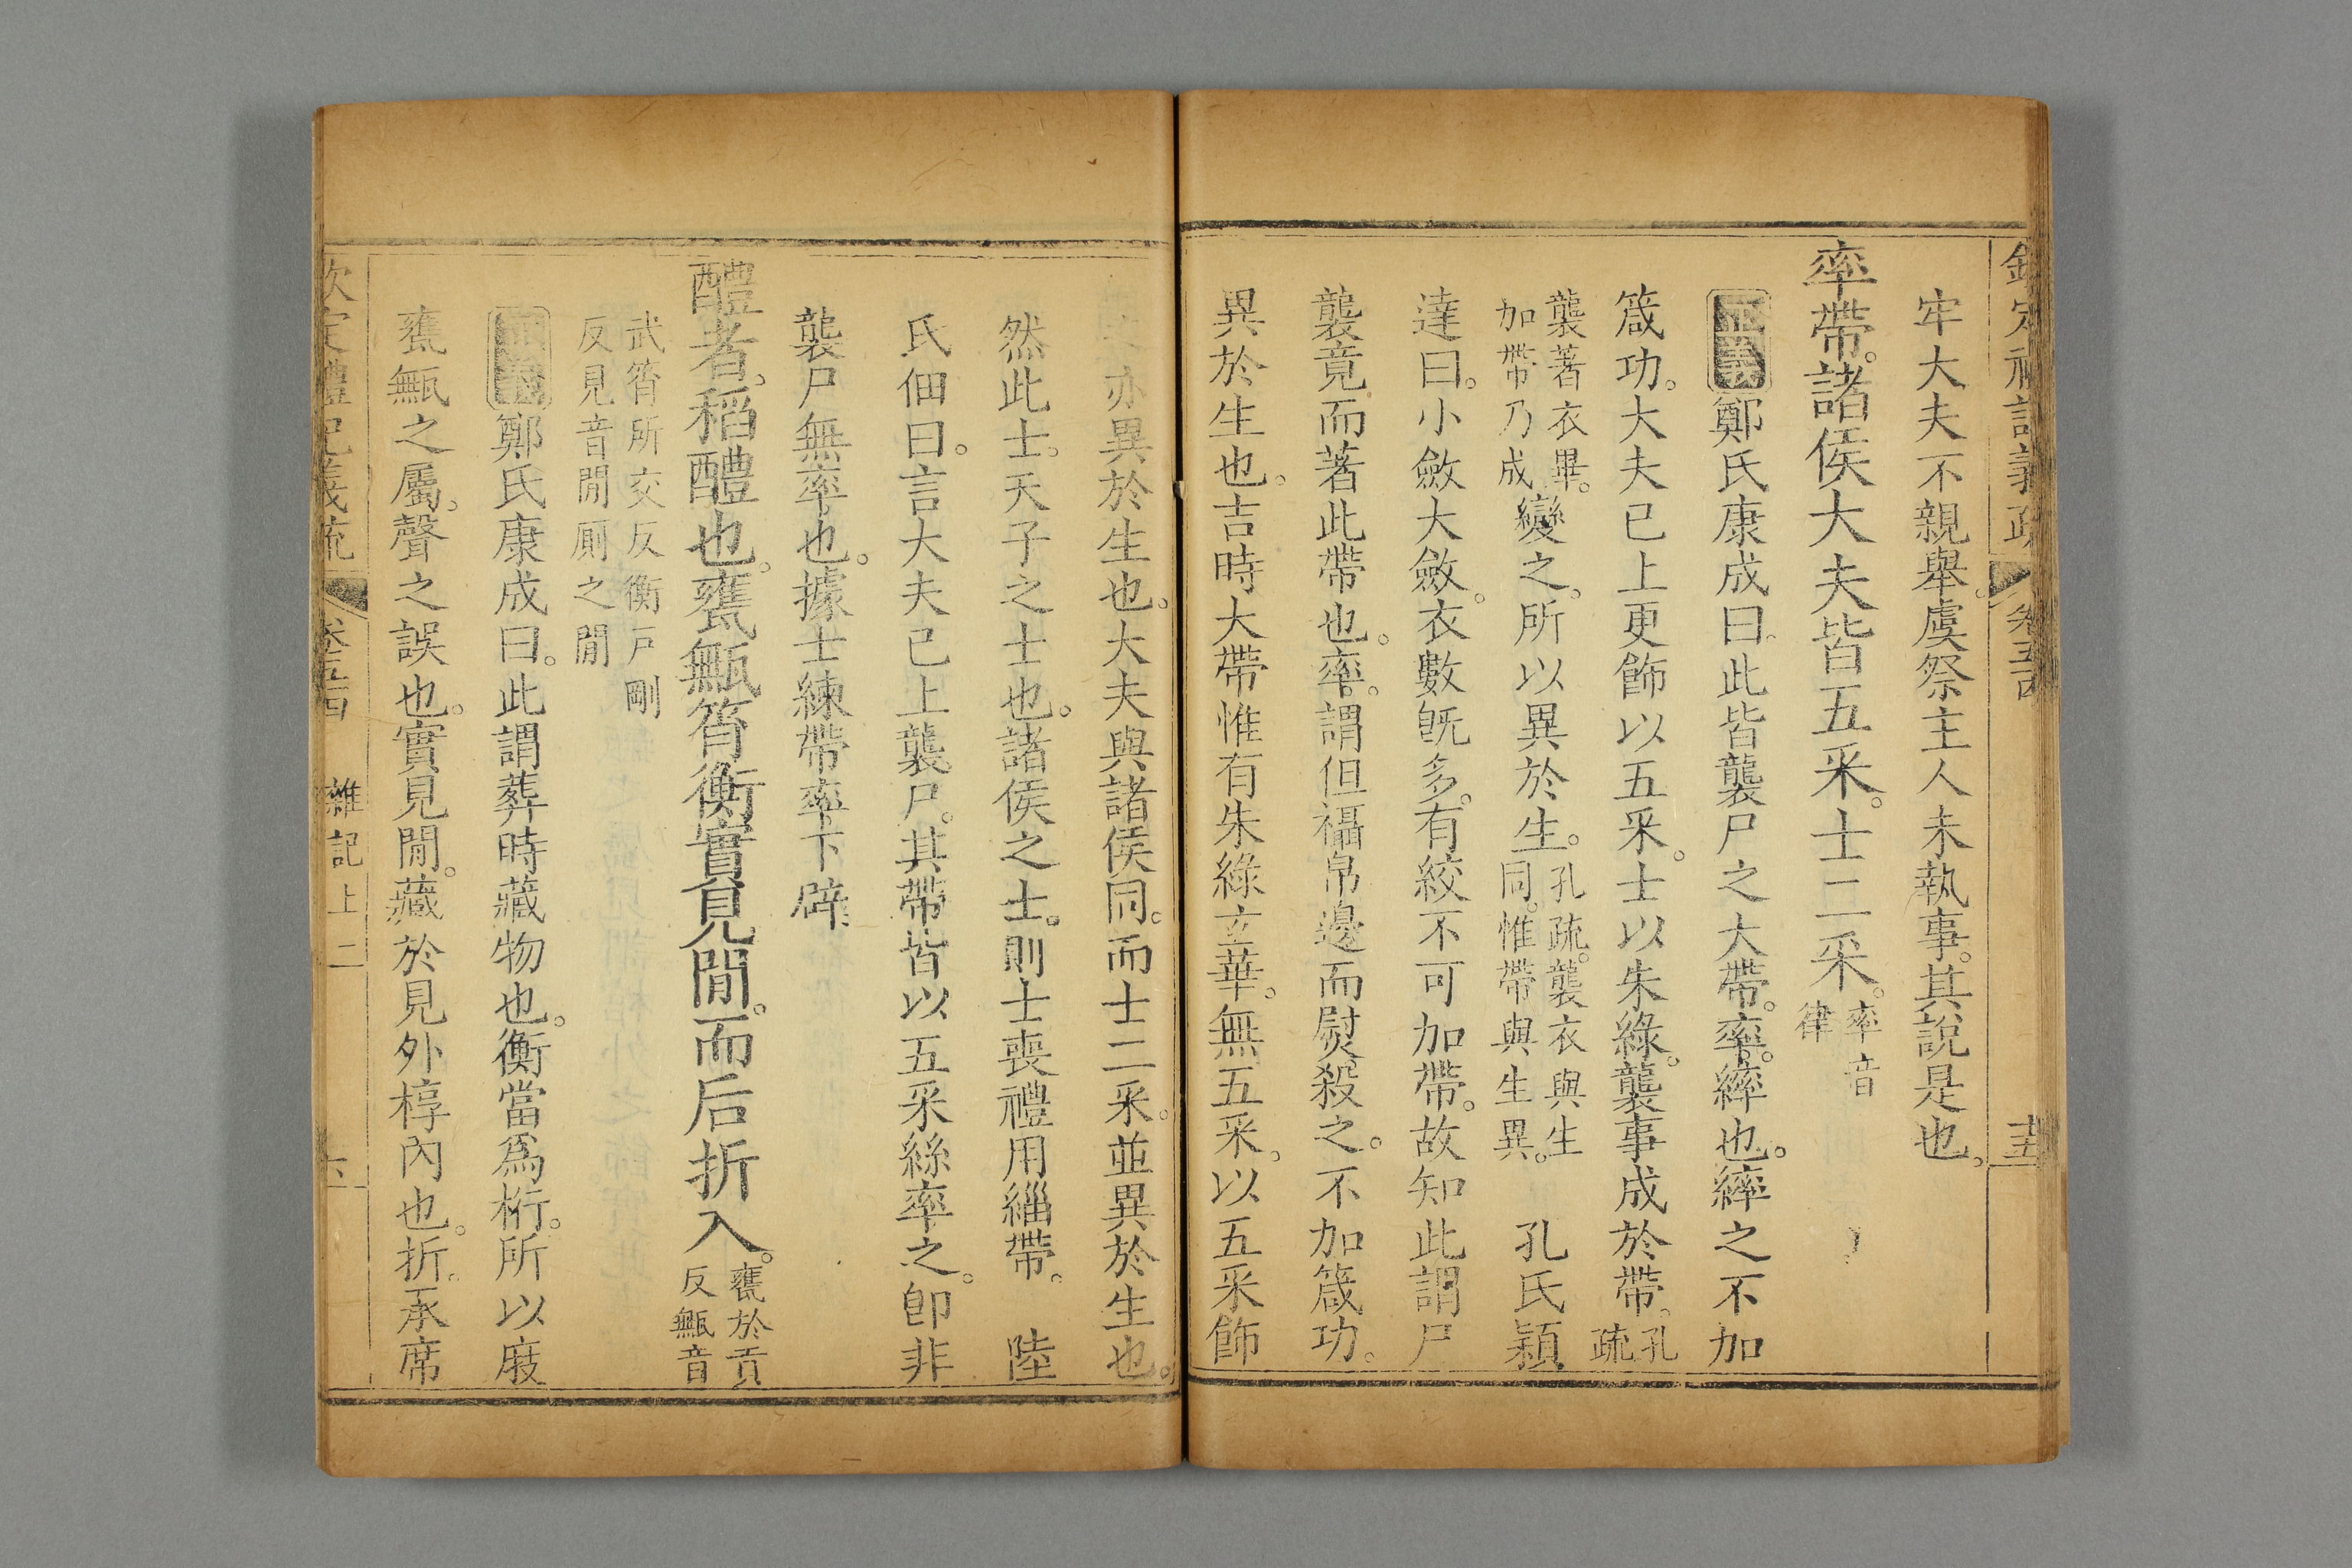 欽定禮記義疏 卷五十四 十五
牢大夫不親舉。虞祭主人未執事。其說是也。
率帶。諸侯大夫皆五采。士二采。率音律
正義鄭氏康成曰。此皆襲尸之大帶。率。繂也。繂之不加
箴功。大夫已上更飾以五采。士以朱綠。襲事成於帶。孔疏
襲著衣畢。加帶乃成變之。所以異於生。孔疏。襲衣與生同。惟帶與生異。 孔氏穎
達曰。小斂大斂。衣數旣多。有絞不可加帶。故知此謂尸
襲竟而著此帶也。率。謂但襵帛邊而熨殺之。不加箴功。
異於生也。吉時大帶惟有朱綠玄華。無五采。以五采飾
亦異於生也。大夫與諸侯同。而士二采。並異於生也。
然此士。天子之士也。諸侯之士。則士喪禮用緇帶。 陸
氏佃曰。言大夫已上襲尸。其帶皆以五采絲率之。卽非
襲尸無率也。據士練帶率下辟
醴者。稻醴也。甕甒筲衡。實見閒。而后折入。甕於貢反甒音
武筲所交反衡戶剛反見音閒厠之閒
正義鄭氏康成曰。此謂葬時藏物也。衡當爲桁。所以庪
甕甒之屬。聲之誤也。實見閒。藏於見外椁內也。折。承席
欽定禮記義疏 卷五十四 雜記上二